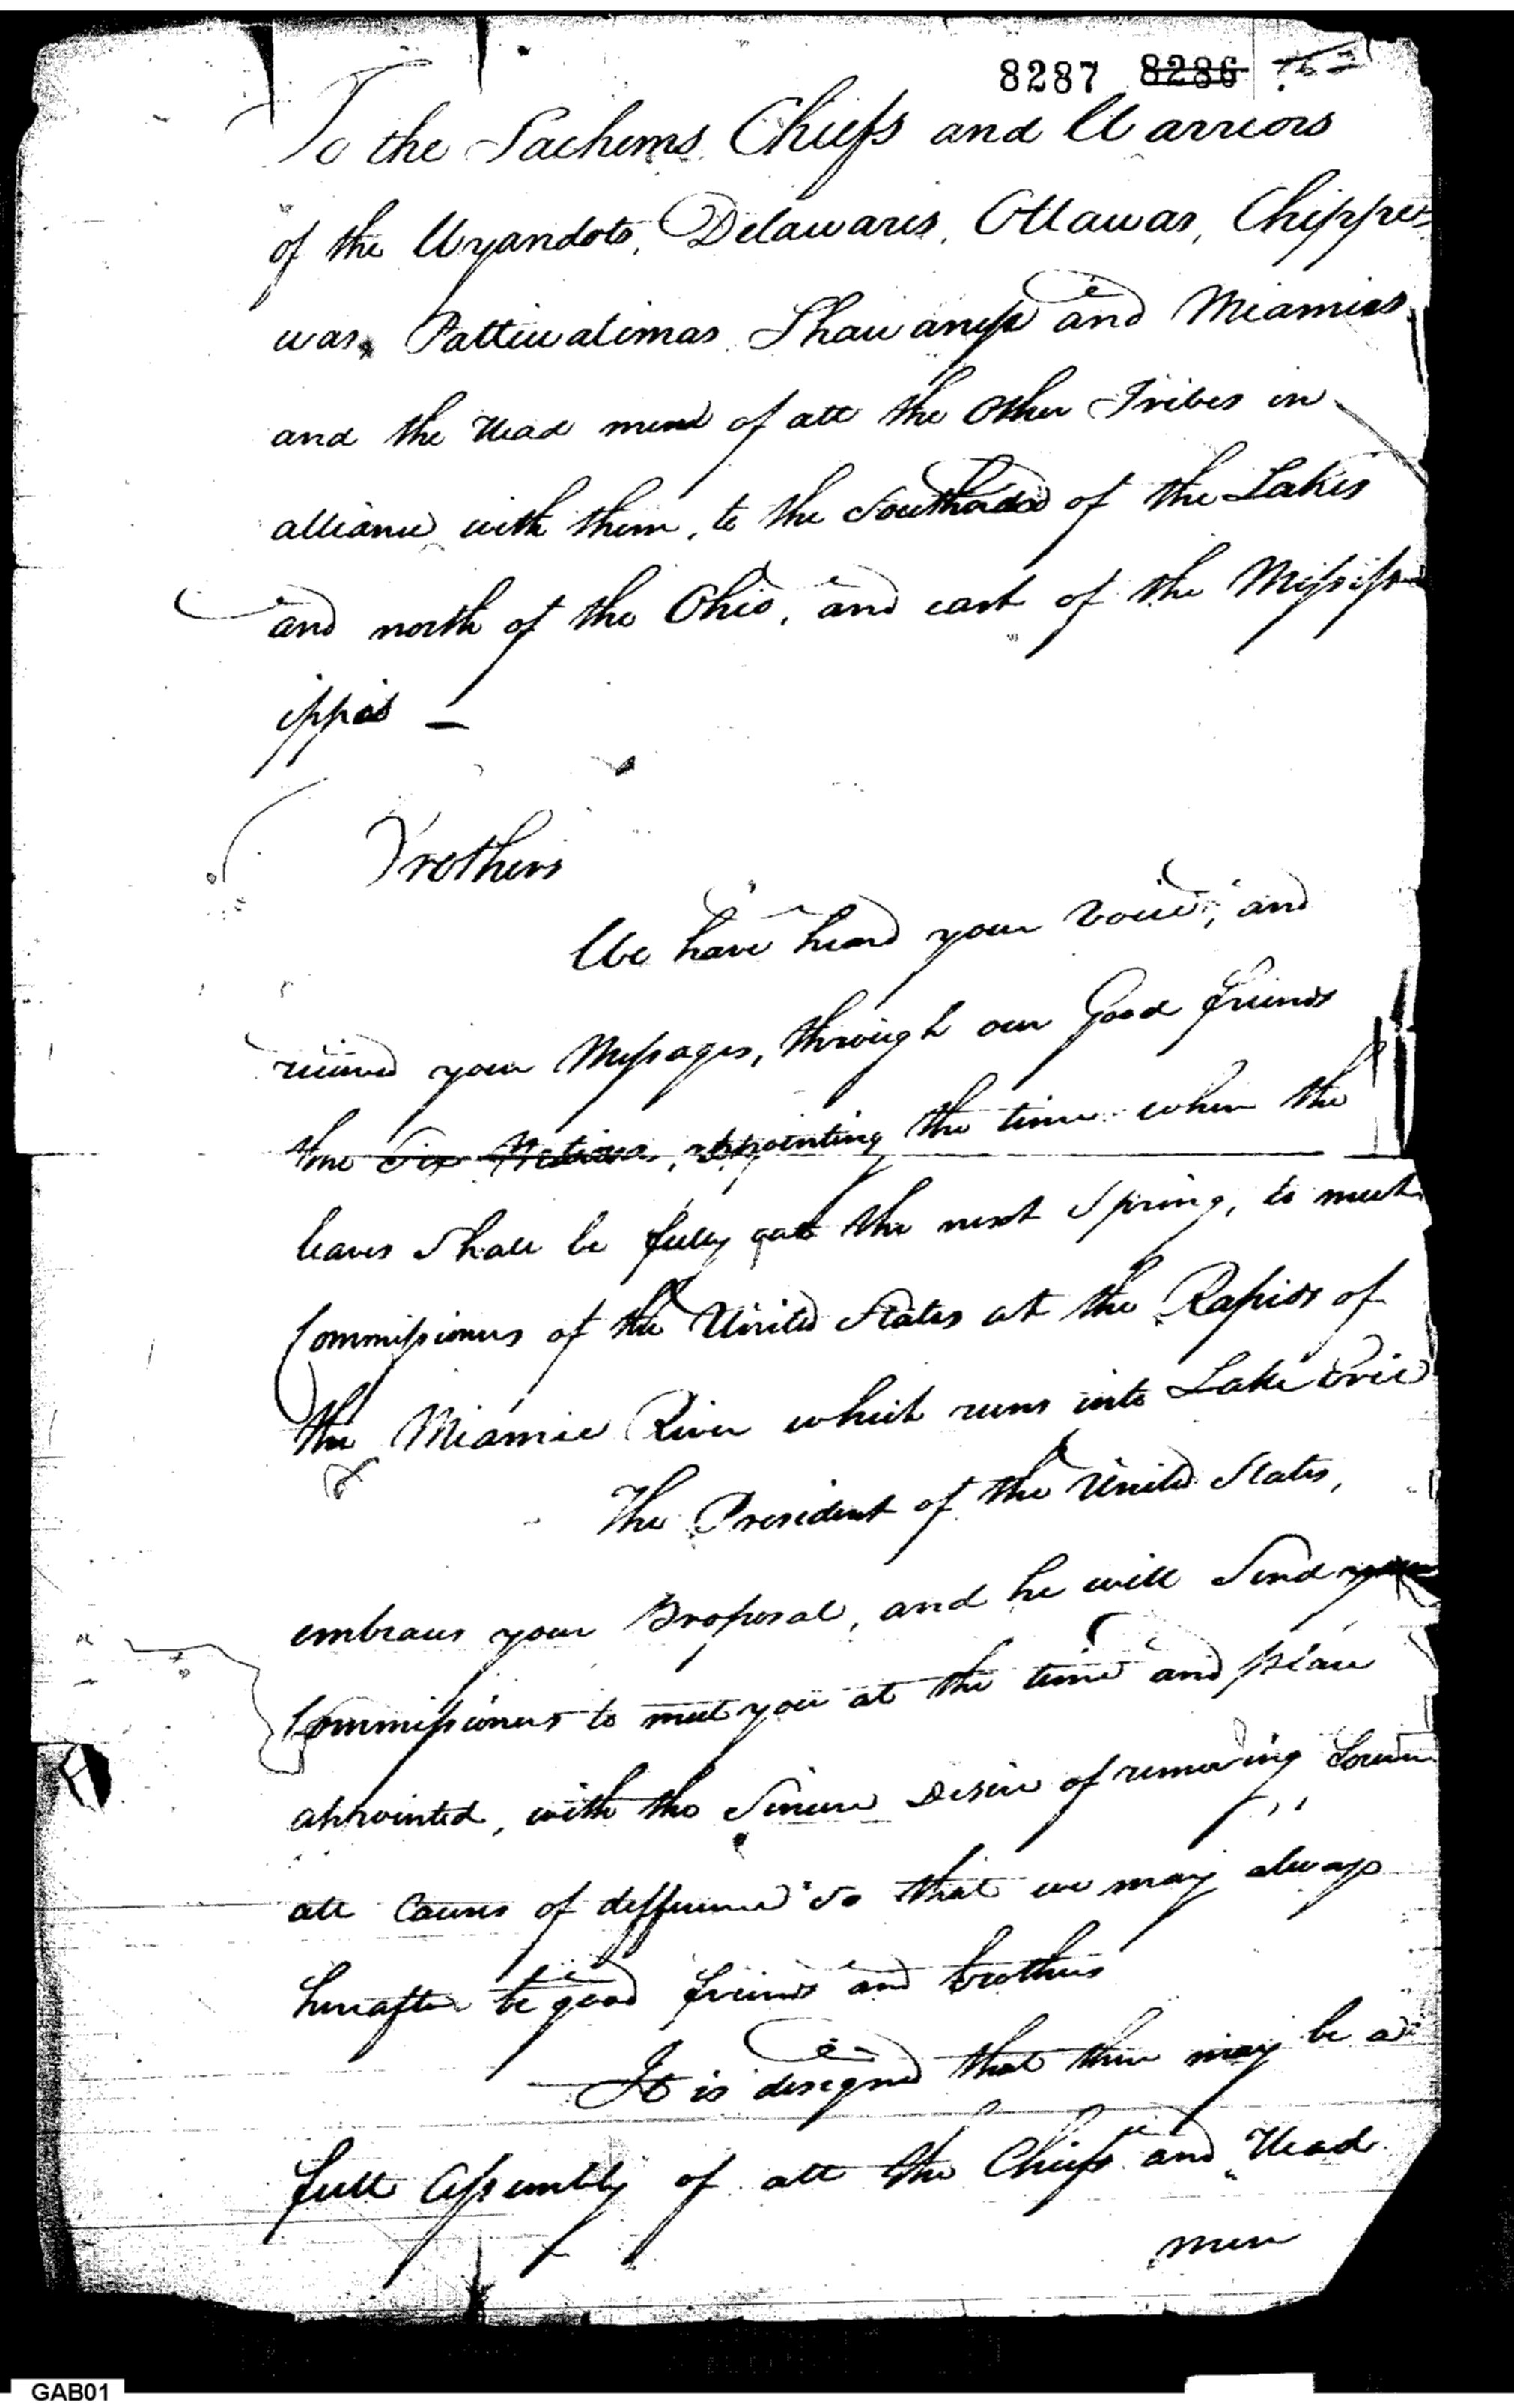 8287 8286
To the Sachems Chiefs and Warriors
of the Wyandots, Delawares, Ottawas, Chippe
was, Pattiwatimas Shawanese and Miamies
and the Head men of all the other Tribes in
alliance with them, to the Southard of the Lakes
and north of the Ohio, and east of the Mississ
ippi –
Brothers
We have heard your voice, and
received your Messages, through our Good friends
the Six Nations, appointing the time when the
leaves shall be fully out the next Spring, to meet
Commissioners of the United States at the Rapids of
the Miamie River which runs into Lake Erie
The President of the United States,
embraces your Proposal, and he will Send
Commissioners to meet you at the time and place
appointed, with the Sincere Desire of removing
all Causes of defference so that we may always
hereafter be good friends and brothers
It is designed that there may be a
full Assembly of all the Chiefs and Head
men
GAB01